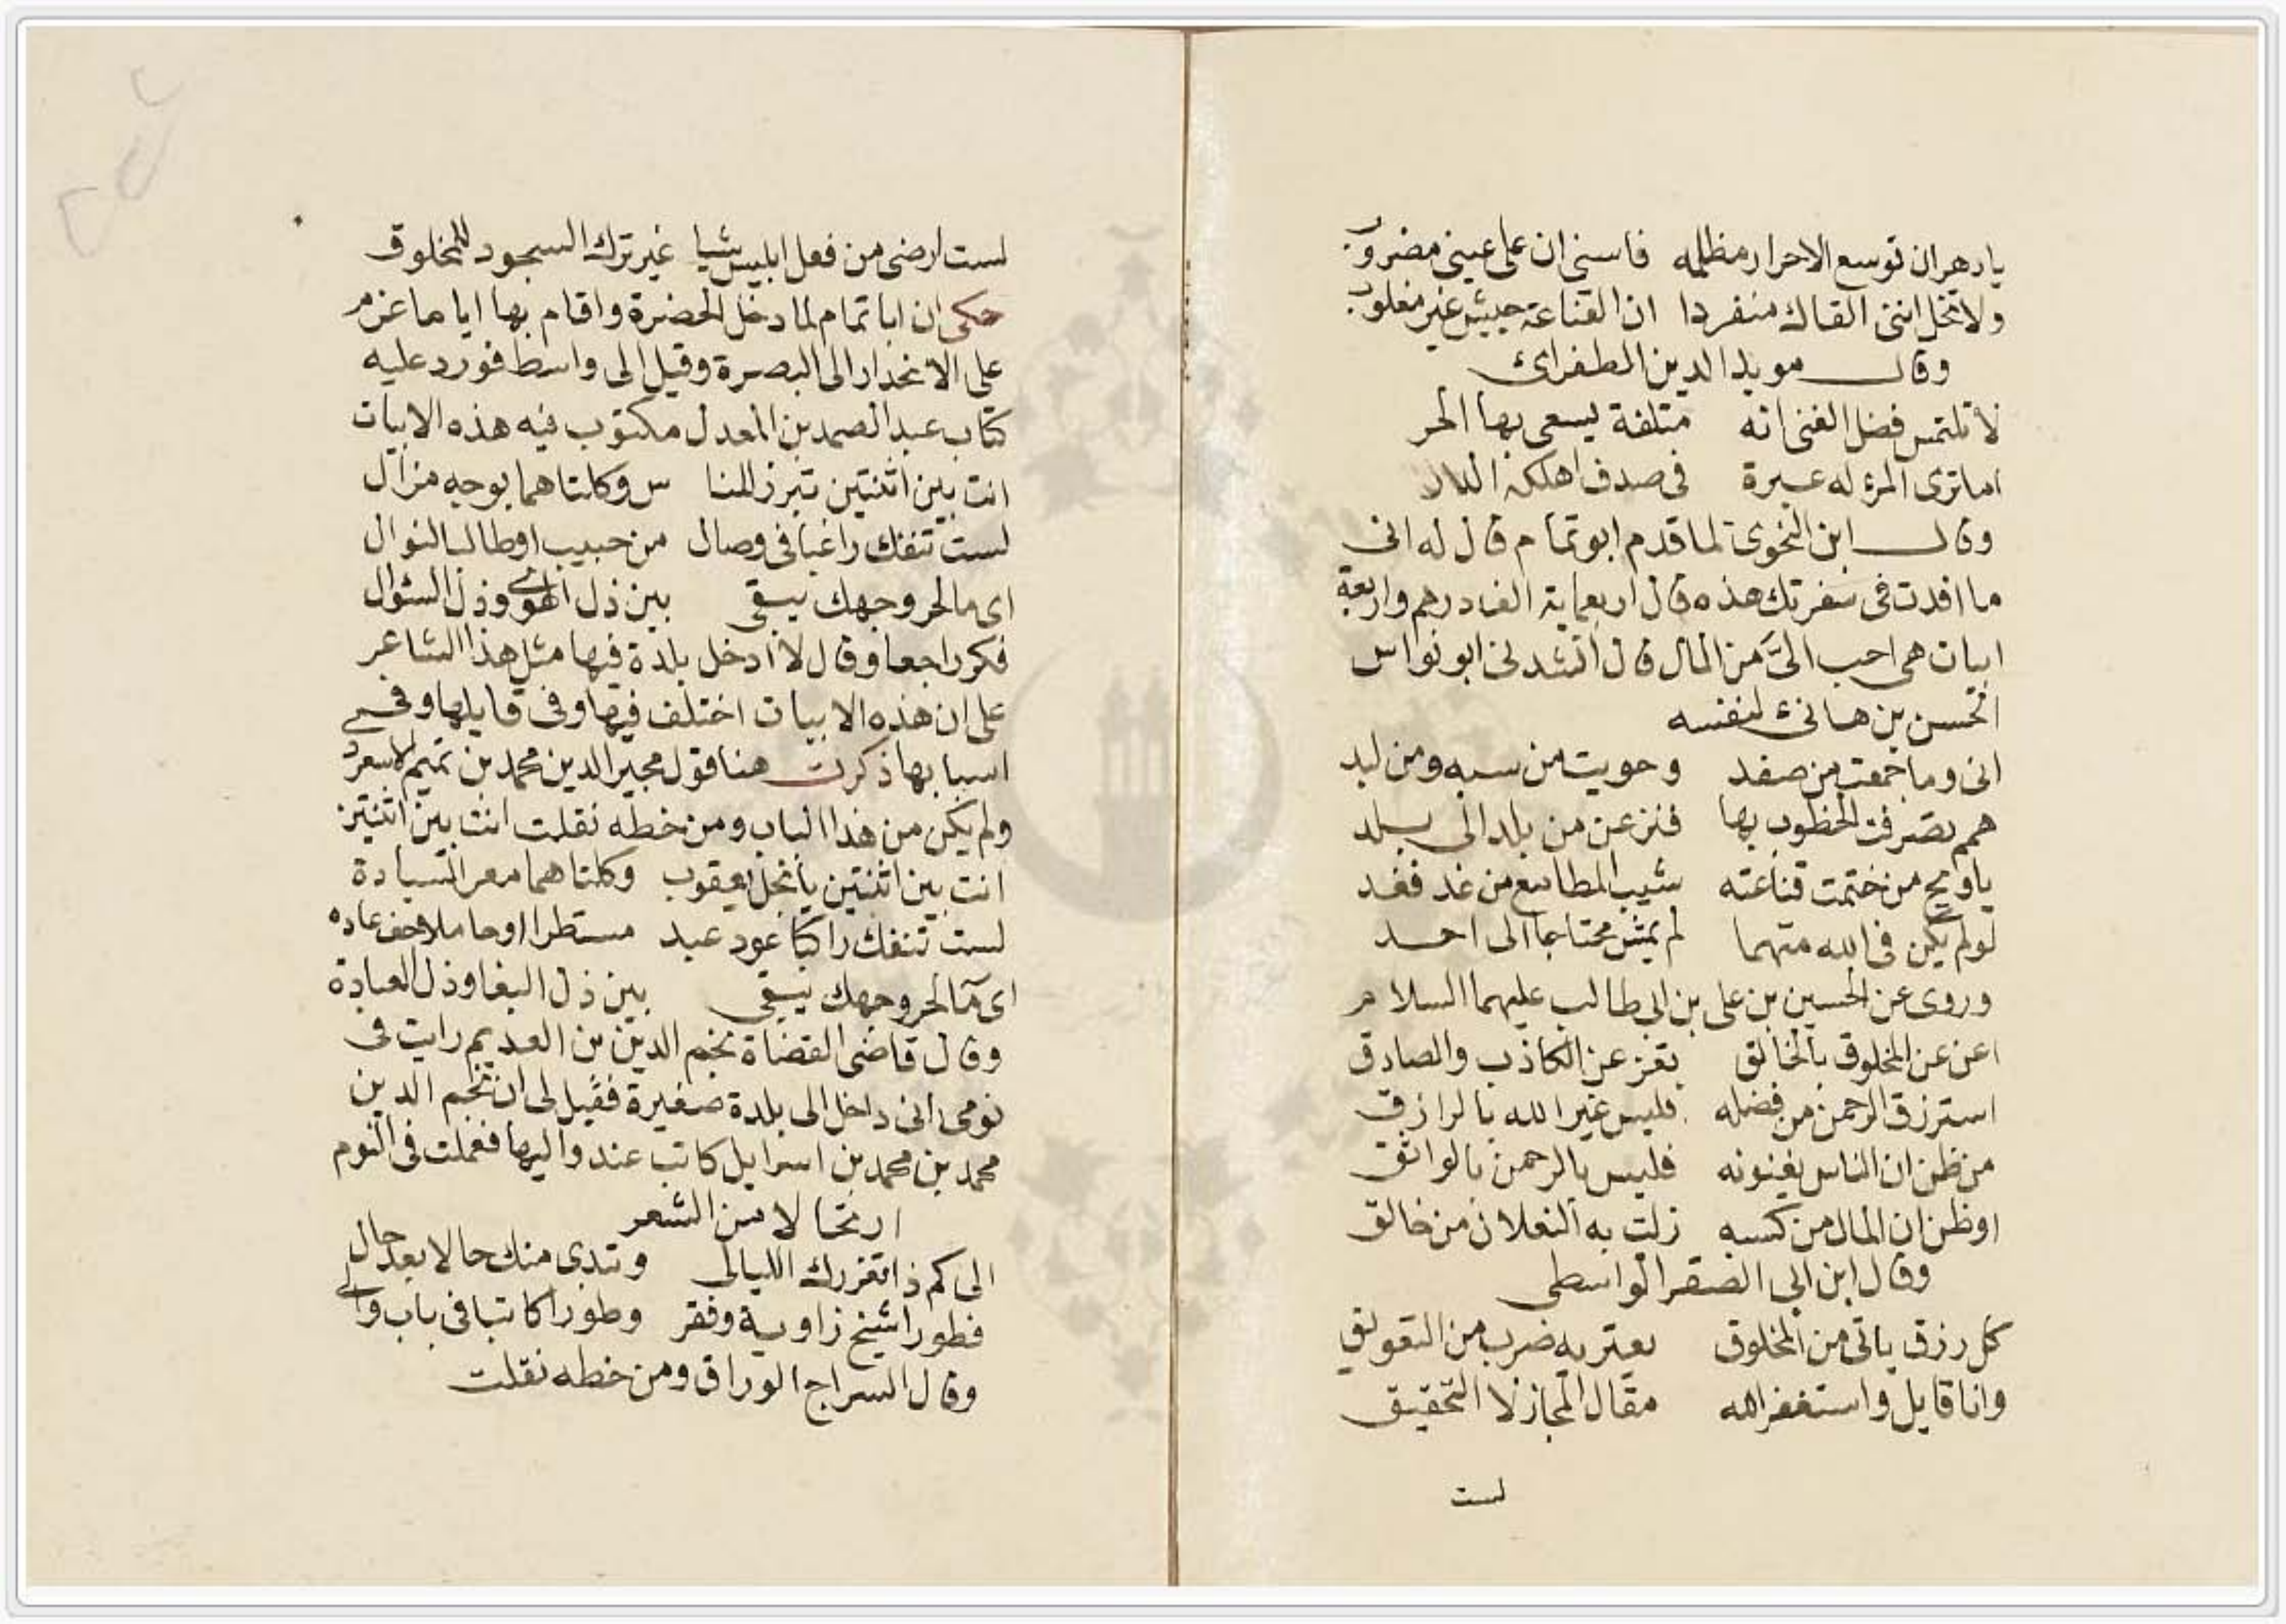 يا دهر ان توسع الاحرار مظلمه فاستثني ان على عيني مضروب
ولا تخل انني القاك منفردا ان القناعة جيش غير مغلوب
وقال مويد الدين الطغرائ
لا تلتمس فضل الغنى انه متلفة يسعى بها الحر
اما ترى المرؤ له عبرة في صدف اهلكه الدر
وقال ابن النحوى لما قدم ابو تمام قال له انى
ما افدت فى سفرتك هذه قال اربعماية الف درهم واربعة
ابيات هى احب الىَّ من المال قال انشدنى ابو نواس
الحسن بن هانئ لنفسه
انى وما جمعت من صفد وحويت من سبد ومن لبد
همم تصرفت الخطوب بها فنزعن من بلد الى بلد
يا ويح من ختمت قناعته بسبب المطامع من غد فغد
لو لم يكن فى الله متهما لم يمش محتاجا الى احد
وروى عن الحسين بن على بن ابى طالب عليهما السلام
اغن عن المخلوق بالخالق تغن عن الكاذب والصادق
استرزق الرحمن من فضله فليس غير الله بالرازق
من ظن ان الناس يغنونه فليس بالرحمن بالواثق
او ظن ان المال من كسبه زلت به النعلان من خالق
وقال ابن ابى الصقر الواسطى
كل رزق ياتى من المخلوق يعتريه ضرب من التعويق
وانا قايل واستغفر الله مقال المجاز لا التحقيق
لست
لست ارضى من فعل ابليس شيا غير ترك السجود للمخلوق
حكى ان ابا تمام لما دخل الحضرة واقام بها اياما عزم
على الانحدار الى البصرة وقيل الى واسط فورد عليه
كتاب عبد الصمد بن المعدل مكتوب فيه هذه الابيات
انت بين اثنتين تبرز للنا س وكلتاهما بوجه مزال
لست تنفك راغبا فى وصال من حبيب او طالبا لنوال
اى ما لحر وجهك يبقى بين ذل الهوى وذل السؤال
فكر راجعا وقال لا ادخل بلدة فيها مثل هذا الشاعر
على ان هذه الابيات اختلف فيها وفى قايلها وفى
اسبابها ذكرت هنا قول مجير الدين محمد بن تميم لاسعرد
ولم يكن من هذا الباب ومن خطه نقلت انت بين اثنتين
انت بين اثنتين يا نجل يعقوب وكلتاهما مقر السيادة
لست تنفك راكبا عود عبد مستطرا او حاملا خف غاده
اى ما لحر وجهك يبقى بين ذل البغا وذل العبادة
وقال قاضى القضاة نجم الدين بن العديم رايت فى
نومى انى داخل الى بلدة صغيرة فقيل لى ان نجم الدين
محمد بن محمد بن اسرايل كاتب عند واليها فعملت فى النوم
ارتجالا من الشعر
الى كم ذا تغررك الليالى وتبدى منك حالا بعد حال
فطورا شيخ زاوية وفقر وطورا كاتبا فى باب والى
وقال السراج الوراق ومن خطه نقلت